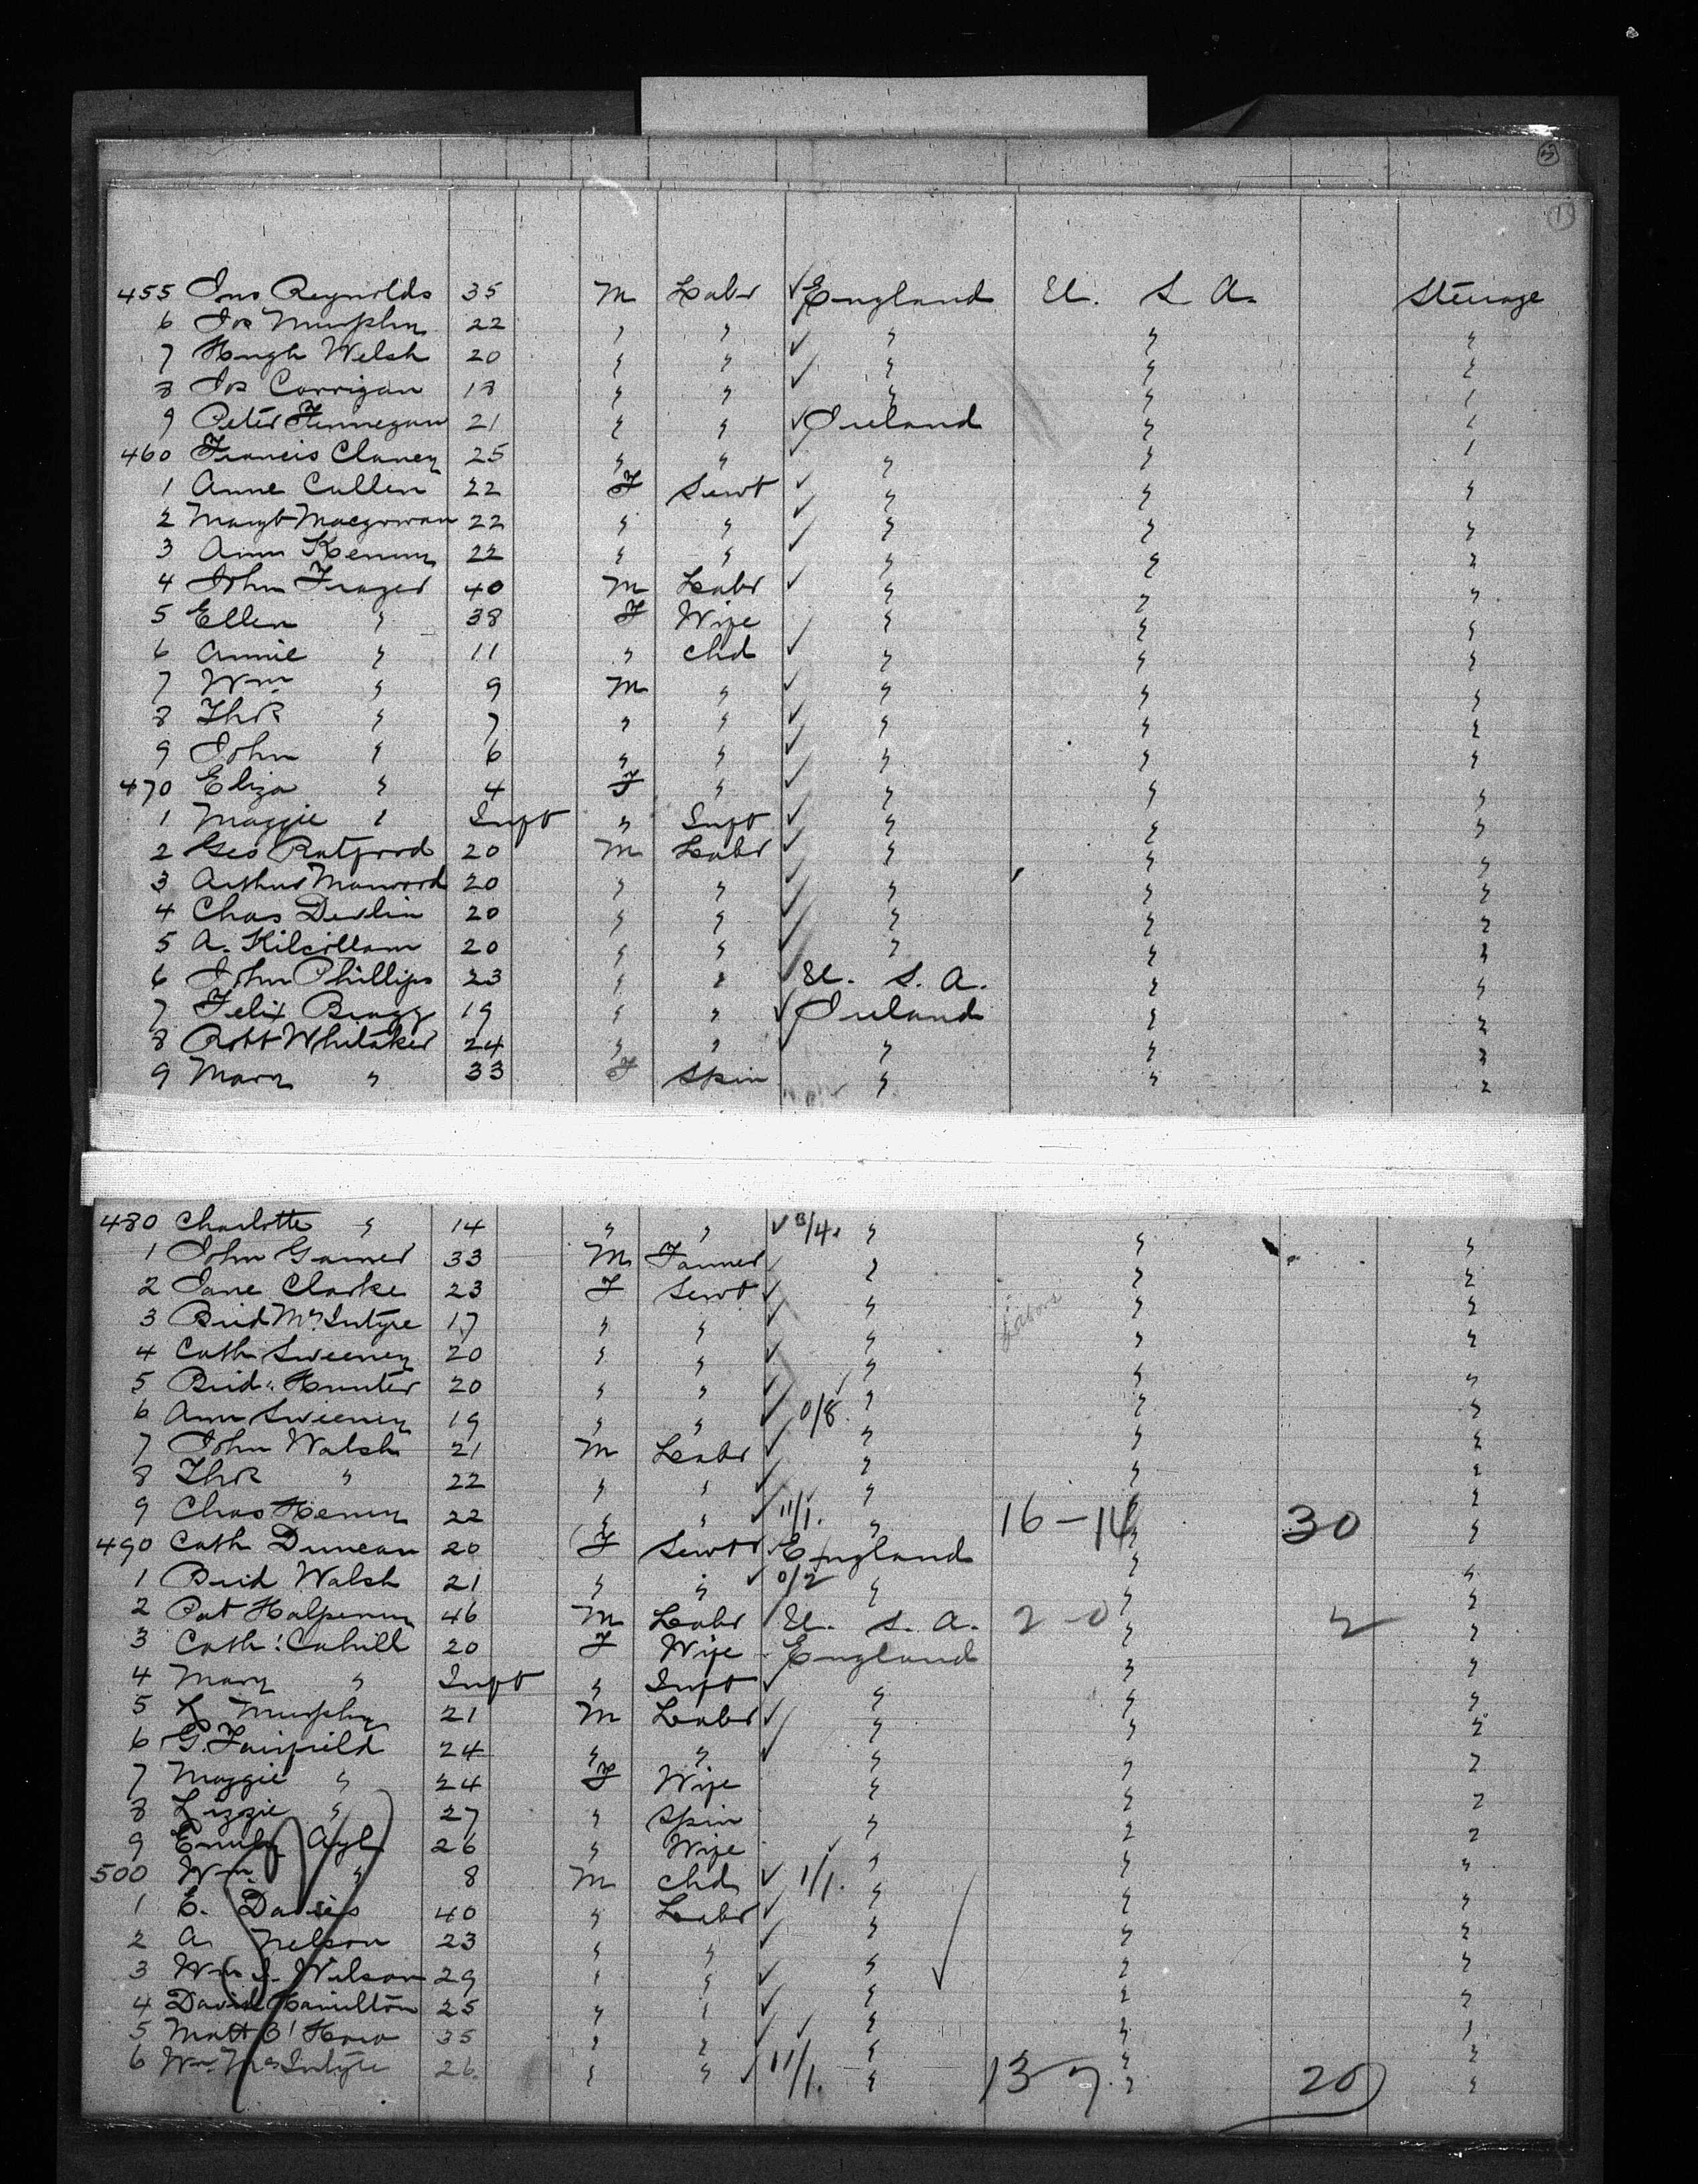 455 Jno Reynolds 35 M Labr ✓ England U. S. A. Steerage
6 Jos Murphy 22 " " ✓ " " "
7 Hugh Welsh 20 " " ✓ " " "
8 Jos Corrigan 18 " " " " "
9 Peter Finnegan 21 " " ✓ Ireland " "
460 Francis Clancy 25 " " " " "
1 Anne Cullen 22 F Servt ✓ " " "
2 Margt Macgowan 22 " " ✓ " " "
3 Ann Kenny 22 " " ✓ " " "
4 John Frazer 40 M Labr ✓ " " "
5 Ellen " 38 F Wife " " "
6 Annie " 11 " chd ✓ " " "
7 Wm " 9 M " ✓ " " "
8 Thos " 7 " " ✓ " " "
9 John " 6 " " ✓ " " "
470 Eliza " 4 F " ✓ " " "
1 Maggie " Inft " Inft ✓ " " "
2 Geo Ratford 20 M Labr ✓ " " "
3 Arthur Marwood 20 " " ✓ " " "
4 Chas Devlin 20 " " ✓ " " "
5 A. Kilcillam 20 " " ✓ " " "
6 John Phillips 23 " " ✓ U. S. A. " "
7 Felix Bragg 19 " " ✓ Ireland " "
8 Robt Whitaker 24 " " ✓ " " "
9 Mary " 33 F Spin " " "
480 Charlotte " 14 " " ✓ 8/4. " " "
1 John Garner 33 M Farmer " " "
2 Jane Clarke 23 F Servt ✓ " " "
3 Brid McIntyre 17 " " ✓ " " "
4 Cath Sweeney 20 " " ✓ " " "
5 Brid. Hunter 20 " " ✓ " " "
6 Ann Sweeney 19 " " ✓ 0/8. " " "
7 John Walsh 21 M Labr ✓ " " "
8 Thos " 22 " " ✓ " " "
9 Chas Henry 22 " " ✓ 11/1. " 16-14 " 30 "
490 Cath Duncan 20 F Servt ✓ England " "
1 Brid Walsh 21 " " ✓ 0/2 " " "
2 Pat Halpenny 46 M Labr ✓ U. S. A. 2-0 " 2 "
3 Cath: Cahill 20 F Wife England " "
4 Mary " Inft " Inft ✓ " " "
5 L Murphy 21 M Labr ✓ " " "
6 G. Fairfield 24 " " ✓ " " "
7 Maggie " 24 F Wife " " "
8 Lizzie " 27 " Spin " " "
9 Emily 26 " Wife " " "
500 Wm " 8 M chd ✓ 1/1. " " "
1 E. Davies 40 " Labr ✓ " " "
2 A. Nelson 23 " " ✓ " " "
3 Wm J. Wilson 29 " " ✓ " " "
4 David Hamilton 25 " " ✓ " " "
5 Matt O'Hara 35 " " ✓ " " "
6 Wm McIntyre 26 " " ✓ 11/1. " 13-7. " 20 "